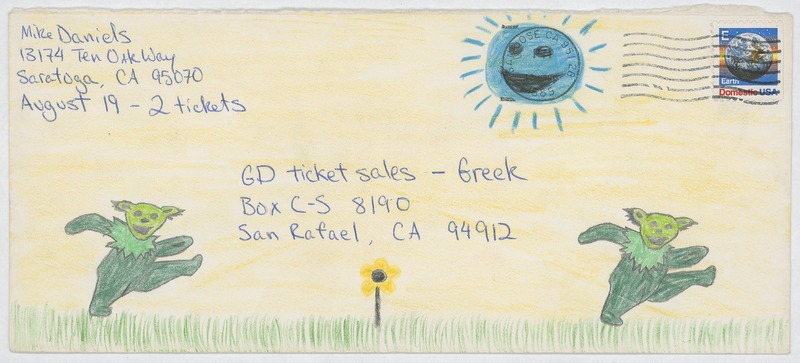 Mike Daniels
13174 Ten Oak Way
Saratoga, CA 95070
August 19 - 2 tickets
SAN JOSE CA 951 28
E
Earth
Domestic USA
GD ticket sales - Greek
Box C-S 8190
San Rafael, CA 94912